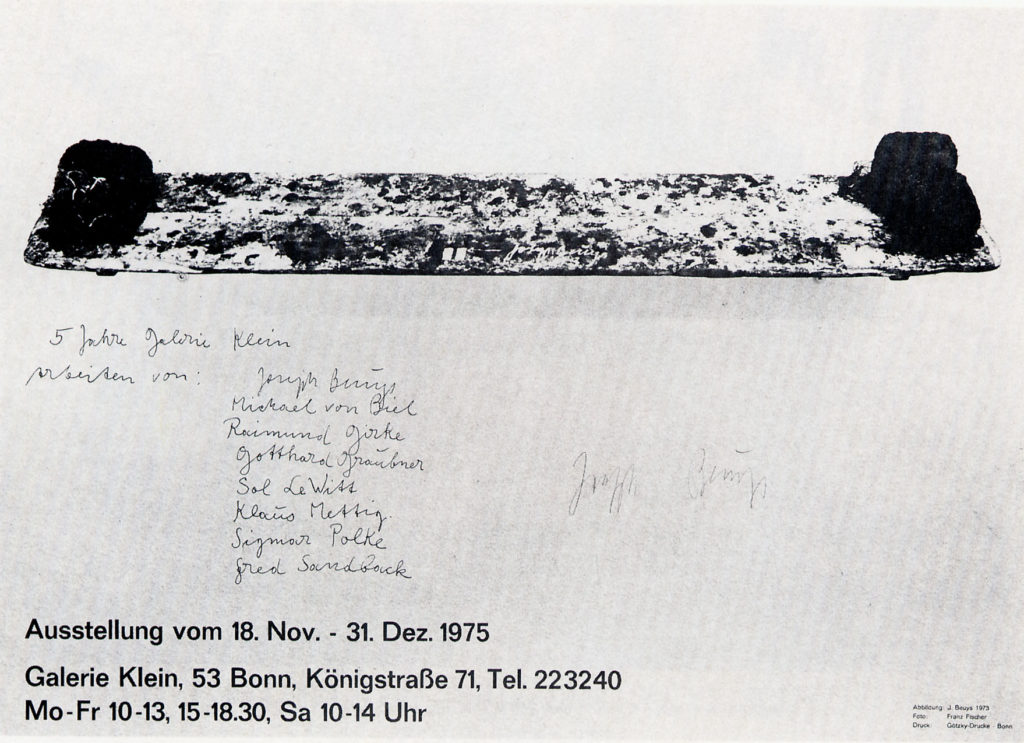 5 Jahre Galerie Klein
Arbeiten von: Joseph Beuys
Michael von Biel
Raimund Girke
Gotthard Graubner
Sol LeWitt
Klaus Mettig.
Sigmar Polke
Fred Sandback
Joseph Beuys
Ausstellung vom 18. Nov. - 31. Dez. 1975
Galerie Klein, 53 Bonn, Königstraße 71, Tel. 223240
Mo-Fr 10-13, 15-18.30, Sa 10-14 Uhr
Abbildung: J. Beuys 1973
Foto: Franz Fischer
Druck: Götzky-Drucke - Bonn